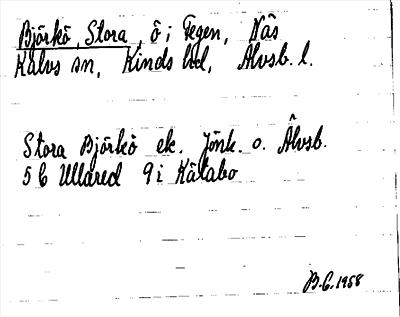 Björkö, Stora, ö i Fegen, Näs
Kalvs sn, Kinds hd, Älvsb. l.
Stora Björkö ek. Jönk. o. Älvsb.
5 C Ullared 9 i Kälabo
B.C. 1958